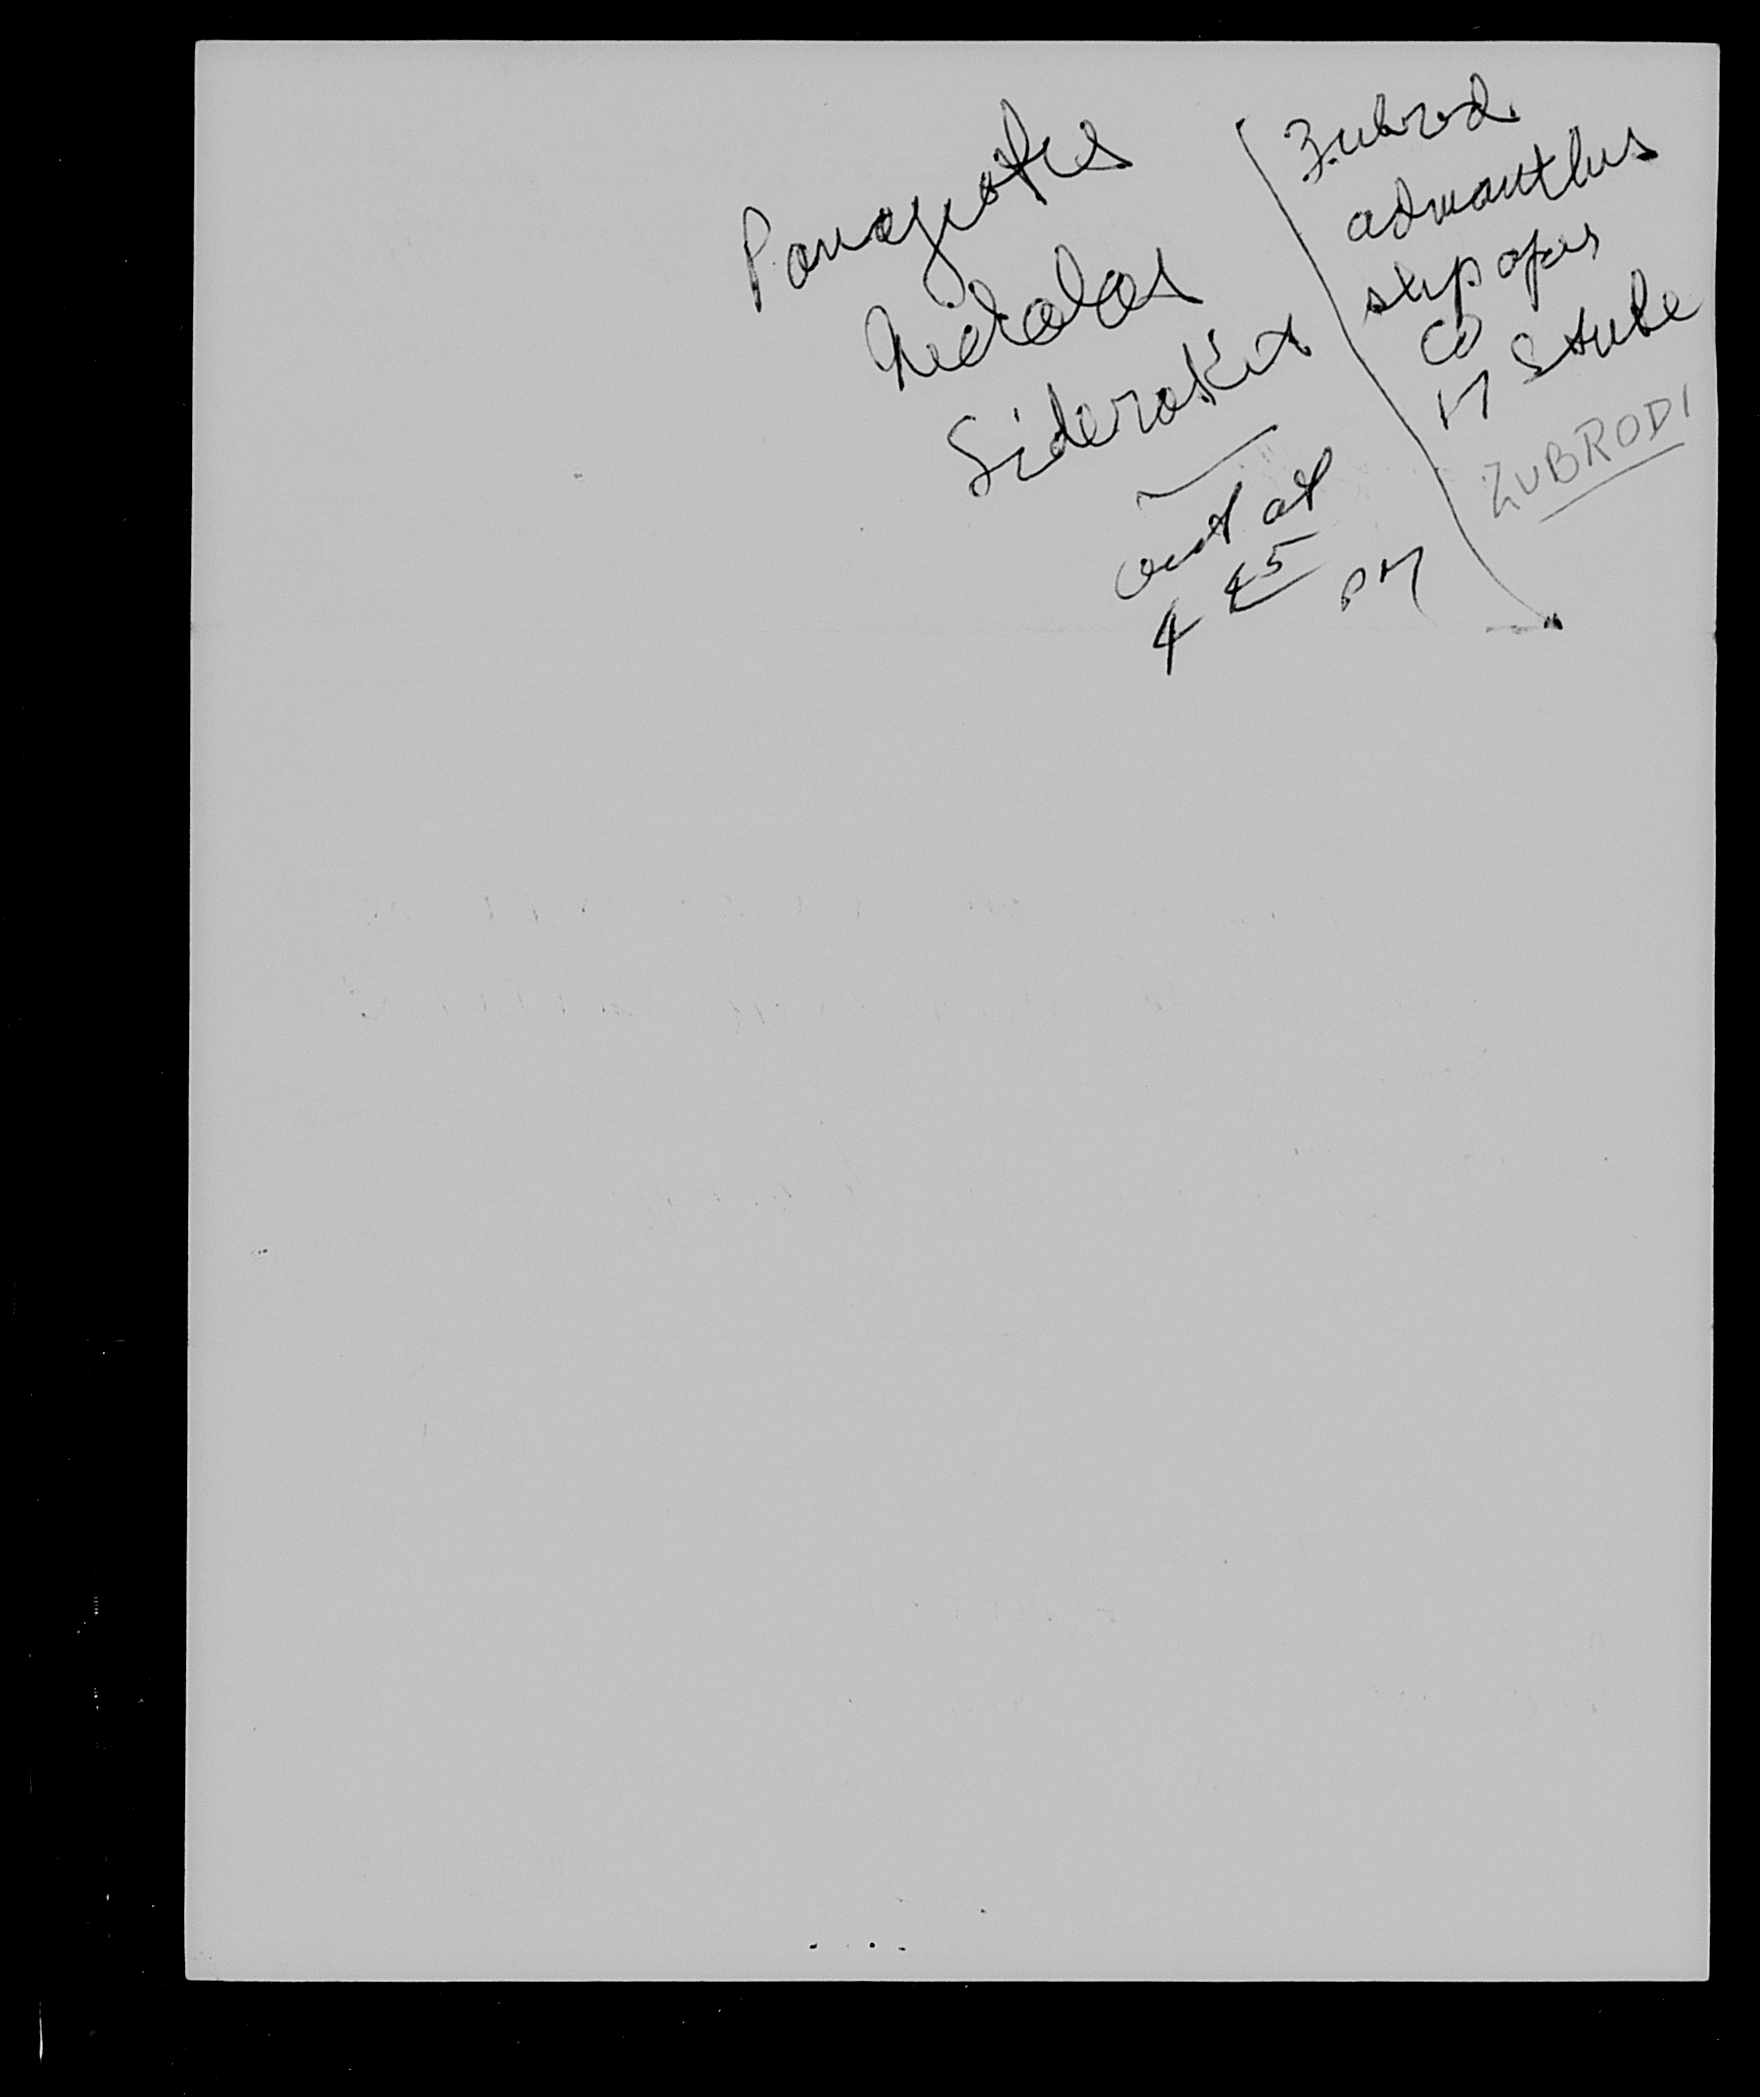 Panagiotis
Nicolas
Siderakis
out at
4 45 PM
Zubrod
admanthus
CO
M Stube
ZUBRODI